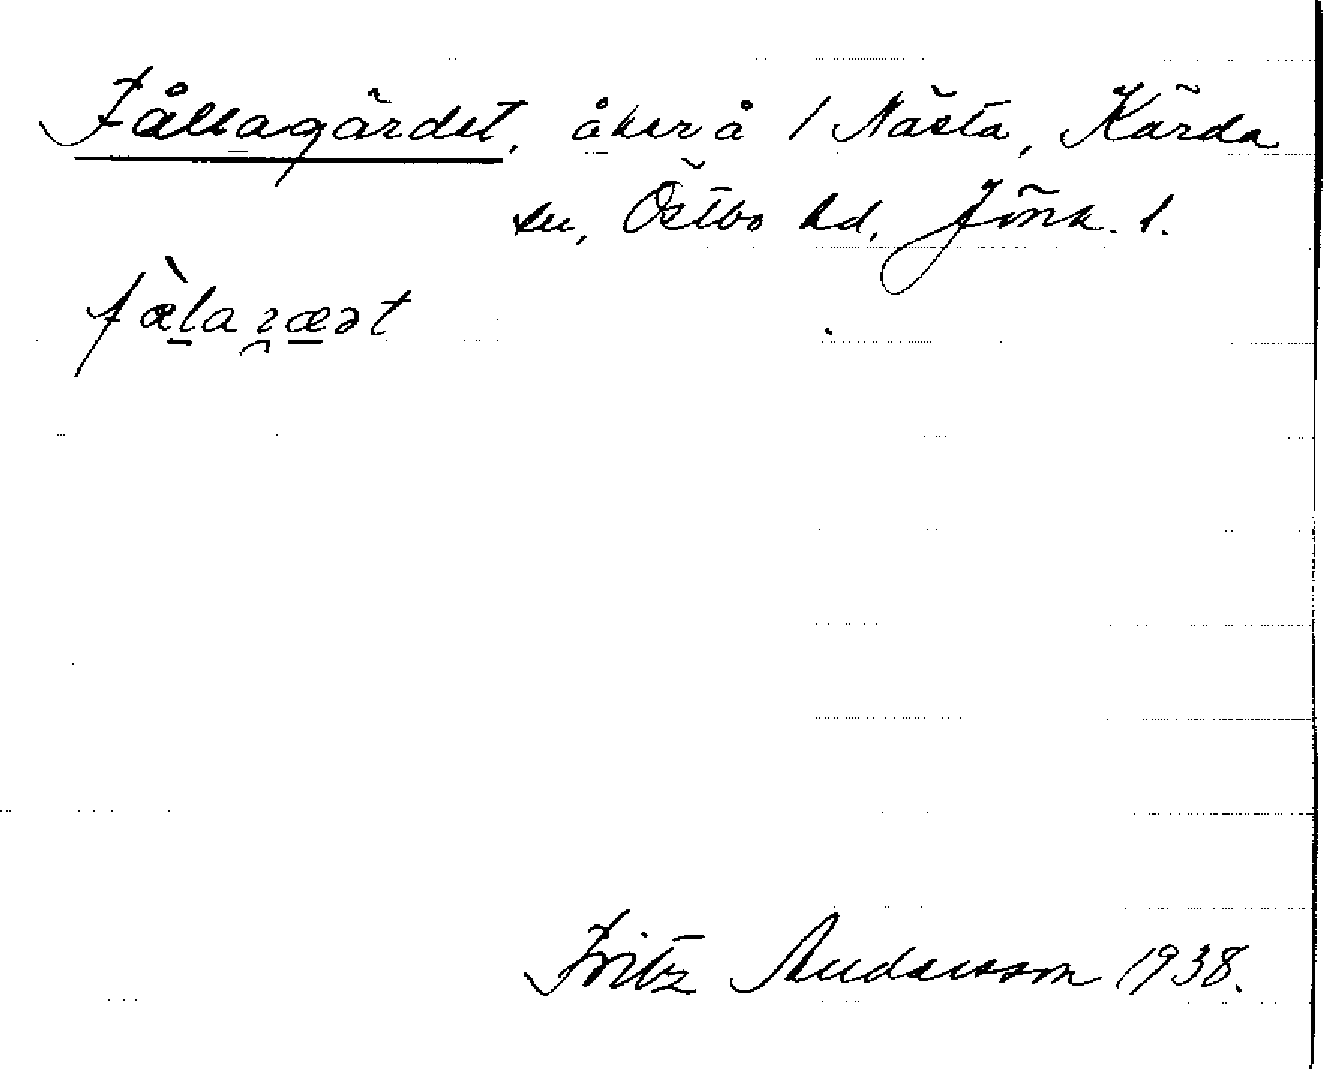 Fållagärdet, åker å 1 Nästa, Kärda
sn, Östbo hd, Jönk. l.
fàlaʒæət
Fritz Andersson 1938.